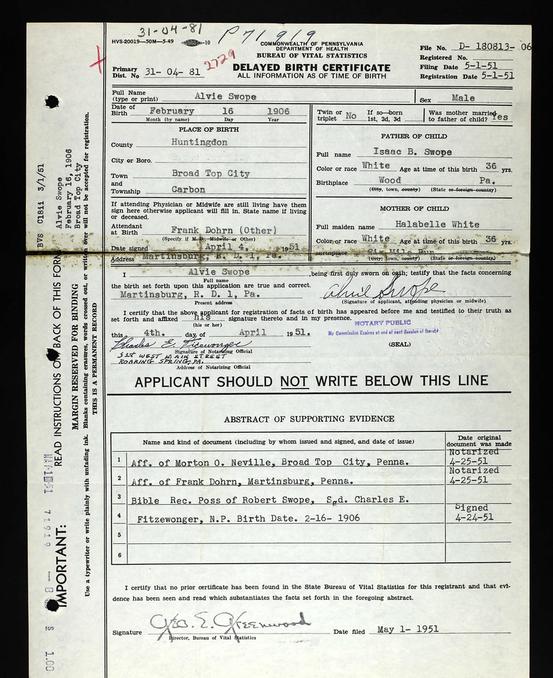 31-04-81 P71919
HVS-20019—50M—5-49
COMMONWEALTH OF PENNSYLVANIA
DEPARTMENT OF HEALTH
BUREAU OF VITAL STATISTICS
File No. D- 180813- 06
Registered No.
Filing Date 5-1-51
Registration Date 5-1-51
2729
Primary Dist. No 31- 04- 81
DELAYED BIRTH CERTIFICATE
ALL INFORMATION AS OF TIME OF BIRTH
Full Name (type or print) Alvie Swope Sex Male
Date of Birth February 16 1906
Month (by name) Day Year
Twin or triplet No If so—born 1st, 2d, 3d Was mother married to father of child? Yes
PLACE OF BIRTH
County Huntingdon
City or Boro.
Town Broad Top City
and
Township Carbon
If attending Physician or Midwife are still living have them sign here otherwise applicant will fill in. State name if living or deceased.
Attendant at Birth Frank Dohrn (Other)
(Specify if M.D., Midwife or Other)
Date signed April 4, 1951
Address Martinsburg, R. D. 1, Pa.
FATHER OF CHILD
Full name Isaac B. Swope
Color or race White Age at time of this birth 36 yrs.
Birthplace Wood Pa.
(City, town, county) (State or foreign country)
MOTHER OF CHILD
Full maiden name Halabelle White
Color or race White Age at time of this birth 36 yrs.
I Alvie Swope being first duly sworn on oath, testify that the facts concerning
Full name
the birth set forth upon this application are true and correct.
Martinsburg, R. D. 1, Pa.
Present address
Alvie Swope
(Signature of applicant, attending physician or midwife).
I certify that the above applicant for birth certificate has appeared before me and testified to their truth as
set forth and affixed his signature thereto and in my presence.
(his or her)
this 4th. day of April 1951.
NOTARY PUBLIC
My Commission Expires at end of next Session of Senate
(SEAL)
Charles E. Fitzewonger
Signature of Notarizing Official
321 WEST MAIN STREET
ROARING SPRING, PA.
Address of Notarizing Official
APPLICANT SHOULD NOT WRITE BELOW THIS LINE
ABSTRACT OF SUPPORTING EVIDENCE
Name and kind of document (including by whom issued and signed, and date of issue) Date original document was made
1 Aff. of Morton O. Neville, Broad Top City, Penna. Notarized 4-25-51
2 Aff. of Frank Dohrn, Martinsburg, Penna. Notarized 4-25-51
3 Bible Rec. Poss of Robert Swope, Sgd. Charles E.
4 Fitzewonger, N.P. Birth Date. 2-16- 1906 Signed 4-24-51
5
6
I certify that no prior certificate has been found in the State Bureau of Vital Statistics for this registrant and that evi-
dence has been seen and read which substantiates the facts set forth in the foregoing abstract.
Signature Geo. E. Greenwood Date filed May 1- 1951
Director, Bureau of Vital Statistics
BVS C1811 3/1/51
Alvie Swope
February 16, 1906
Broad Top City
IMPORTANT: READ INSTRUCTIONS ON BACK OF THIS FORM
MARGIN RESERVED FOR BINDING
THIS IS A PERMANENT RECORD